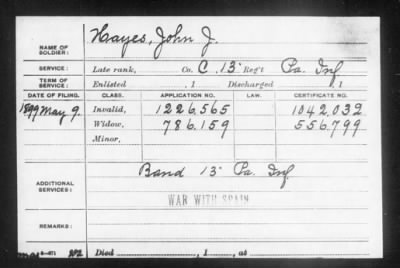 NAME OF SOLDIER: Hayes, John J.
SERVICE: Late rank, Co. C, 13" Reg't Pa. Inf.
TERM OF SERVICE: Enlisted , 1 Discharged , 1
DATE OF FILING. CLASS. APPLICATION NO. LAW. CERTIFICATE NO.
1899 May 9. Invalid, 1226,565 1042,032
Widow, 786,159 556,799
Minor,
ADDITIONAL SERVICES: Band 13" Pa. Inf
WAR WITH SPAIN
REMARKS:
Died , 1 , at